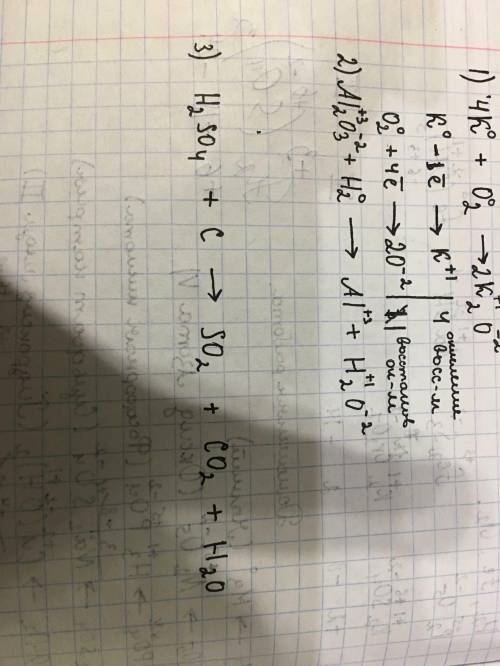 1) 4K⁰ + O₂⁰ → 2K₂⁺¹O⁻²
K⁰ - 1ē → K⁺¹ | 4 окисление восс-ль
O₂⁰ + 4ē → 2O⁻² | 1 восстанов ок-ль
2) Al₂⁺³O₃⁻² + H₂⁰ → Al⁺³ + H₂⁺¹O⁻²
3) H₂SO₄ + C → SO₂ + CO₂ + H₂O